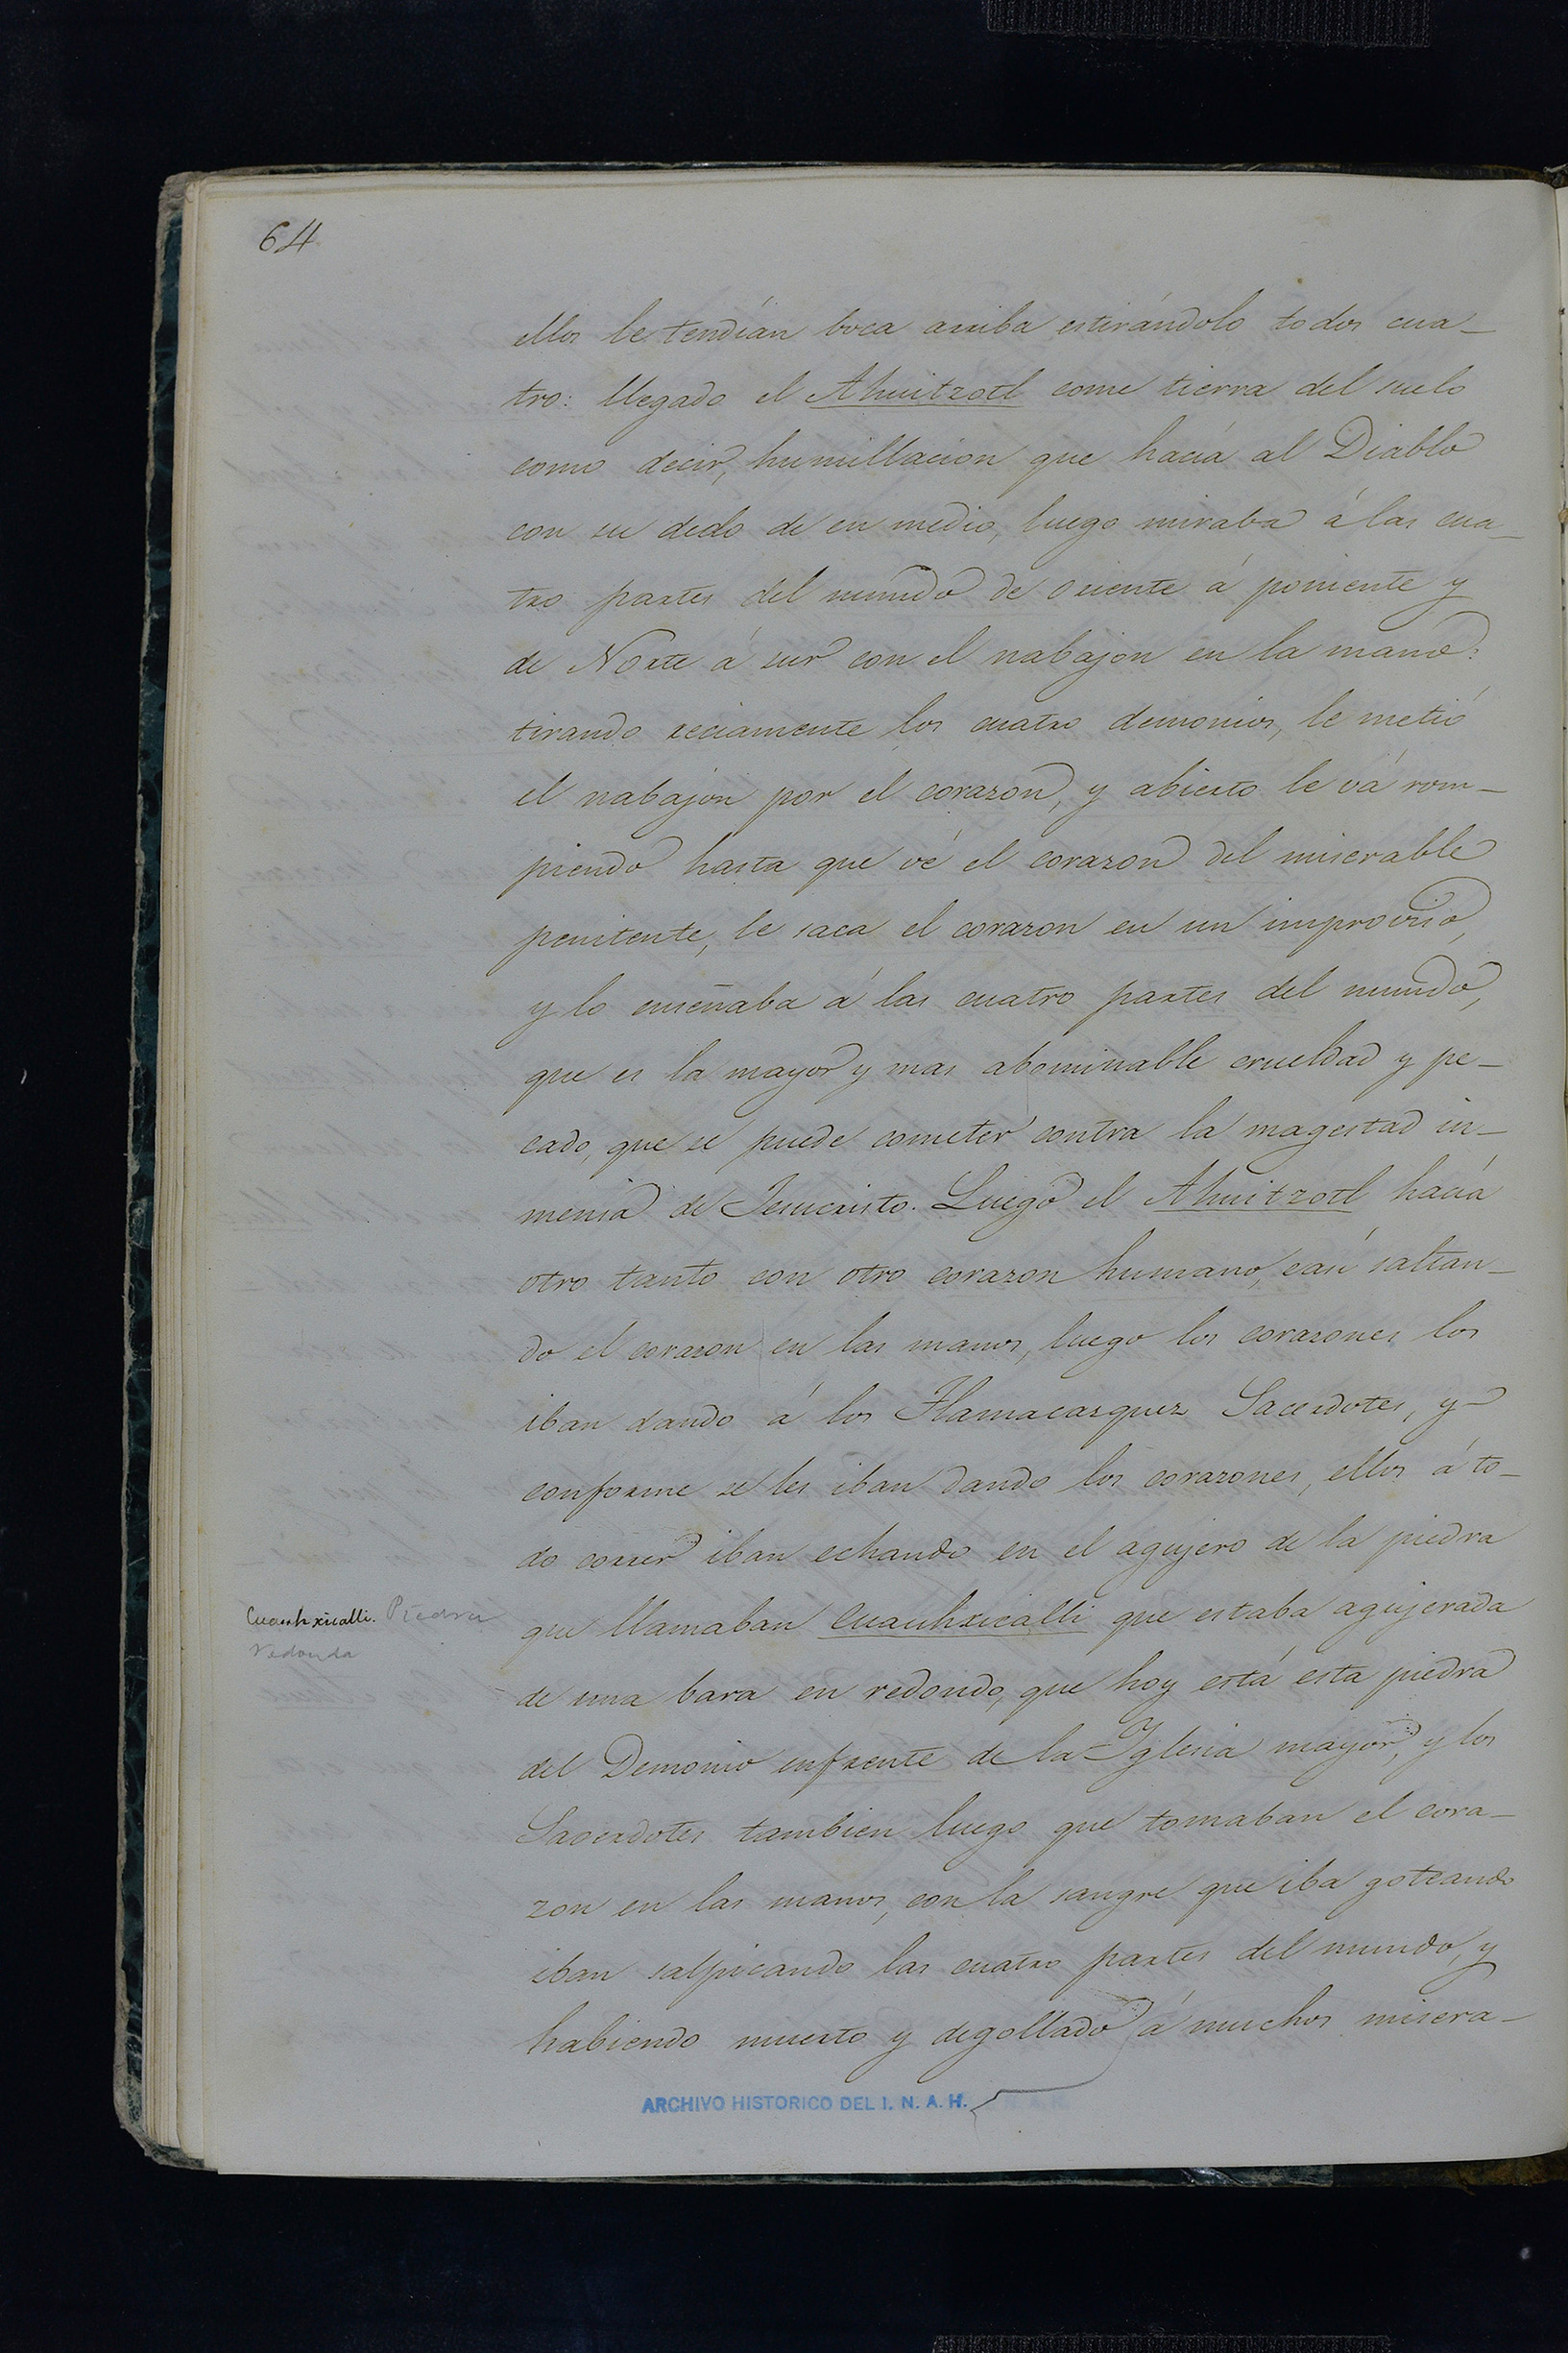 64
ellos le tendían boca arriba estirándolo todos cua-
tro: llegado el Ahuitzotl come tierra del suelo
como decir, humillacion que hacía al Diablo
con su dedo de en medio, luego miraba á las cua-
tro partes del mundo de oriente á poniente y
de Norte á sur con el nabajon en la mano:
tirando reciamente los cuatro demonios, le metió
el nabajon por el corazon, y abierto le vá rom-
piendo hasta que vé el corazon del miserable
penitente, le saca el corazon en un improviso,
y lo enseñaba á las cuatro partes del mundo,
que es la mayor y mas abominable crueldad y pe-
cado, que se puede cometer contra la magestad in-
mensa de Jesucristo. Luego el Ahuitzotl hacía
otro tanto con otro corazon humano, casi saltan-
do el corazon en las manos, luego los corazones los
iban dando á los Tlamacazquez Sacerdotes, y
conforme se les iban dando los corazones, ellos á to-
do correr iban echando en el agujero de la piedra
Cuauhxicalli. Piedra
redonda
que llamaban Cuauhxicalli que estaba agujerada
de una bara en redondo, que hoy está esta piedra
del Demonio enfrente de la Iglesia mayor, y los
Sacerdotes tambien luego que tomaban el cora-
zon en las manos, con la sangre que iba goteando
iban salpicando las cuatro partes del mundo, y
habiendo muerto y degollado á muchos misera-
ARCHIVO HISTORICO DEL I. N. A. H.